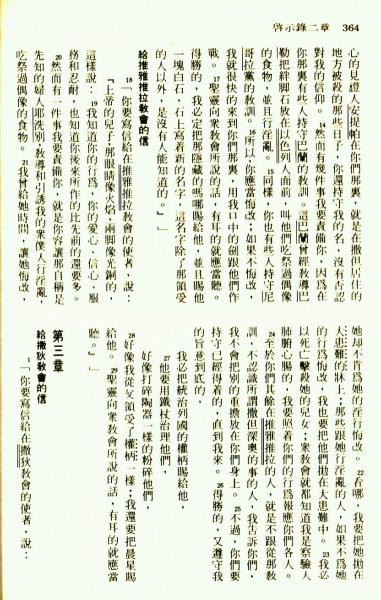 啓示錄二章　364
心的見證人安提帕在你們那裏，就是在撒但居住的
地方被殺的那些日子，你還持守我的名，沒有否認
對我的信仰。14然而有幾件事我要責備你：因爲在
你那裏有些人持守巴蘭的教訓。這巴蘭曾經教導巴
勒把絆脚石放在以色列人面前，叫他們吃祭過偶像
的食物，並且行淫亂。15同樣，你也有些人持守尼
哥拉黨的教訓。16所以，你應當悔改；如果不悔改，
我就很快的來到你們那裏，用我口中的劍跟他們作
戰。17聖靈向衆教會所說的話，有耳的就應當聽。
得勝的，我必定把那隱藏的嗎哪賜給他，並且賜他
一塊白石，石上寫着新的名字；這名字除了那領受
的人以外，是沒有人能知道的。』」
給推雅推拉教會的信
18「你要寫信給在推雅推拉教會的使者，說：
『上帝的兒子，那眼睛像火焰，兩脚像光銅的，
這樣說：19我知道你的行爲，你的愛心、信心、服
務和忍耐，也知道你後來所作的比先前的還要多。
20然而有一件事我要責備你，就是你容讓那自稱是
先知的婦人耶洗別，教導和引誘我的衆僕人行淫亂，
吃祭過偶像的食物。21我曾給她時間，讓她悔改，
她却不肯爲她的淫行悔改。22看哪，我要把她拋在
大患難的牀上；那些跟她行淫亂的人，如果不爲她
的行爲悔改，我也要把他們拋在大患難中。23我必
以死亡擊殺她的兒女；衆教會就都知道我是察驗人
肺腑心腸的，我要照着你們的行爲報應你們各人。
24至於你們其餘在推雅推拉的人，就是不跟從那教
訓，不認識所謂撒但深奧的事的人，我告訴你們，
我不會把別的重擔放在你們身上。25不過，你們要
持守已經得着的，直到我來。26得勝的，又遵守我
的旨意到底的，
我必把統治列國的權柄賜給他，
27他要用鐵杖治理他們，
好像打碎陶器一樣的粉碎他們，
28好像我從父領受了權柄一樣；我還要把晨星賜
給他。29聖靈向衆教會所說的話，有耳的就應當
聽。』」
第三章
給撒狄教會的信
1「你要寫信給在撒狄教會的使者，說：